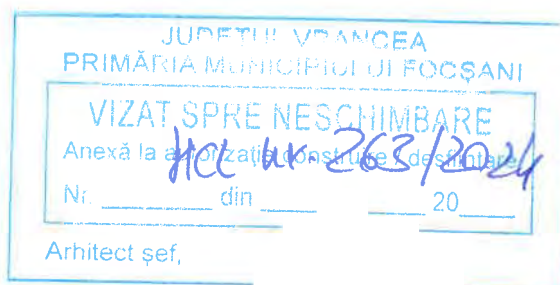 JUDEȚUL VRANCEA
PRIMĂRIA MUNICIPIULUI FOCȘANI
VIZAT SPRE NESCHIMBARE
Anexă la autorizația construire / desființare
HCL nr. 263/2024
Nr. ________ din ______ ______ 20______
Arhitect șef,